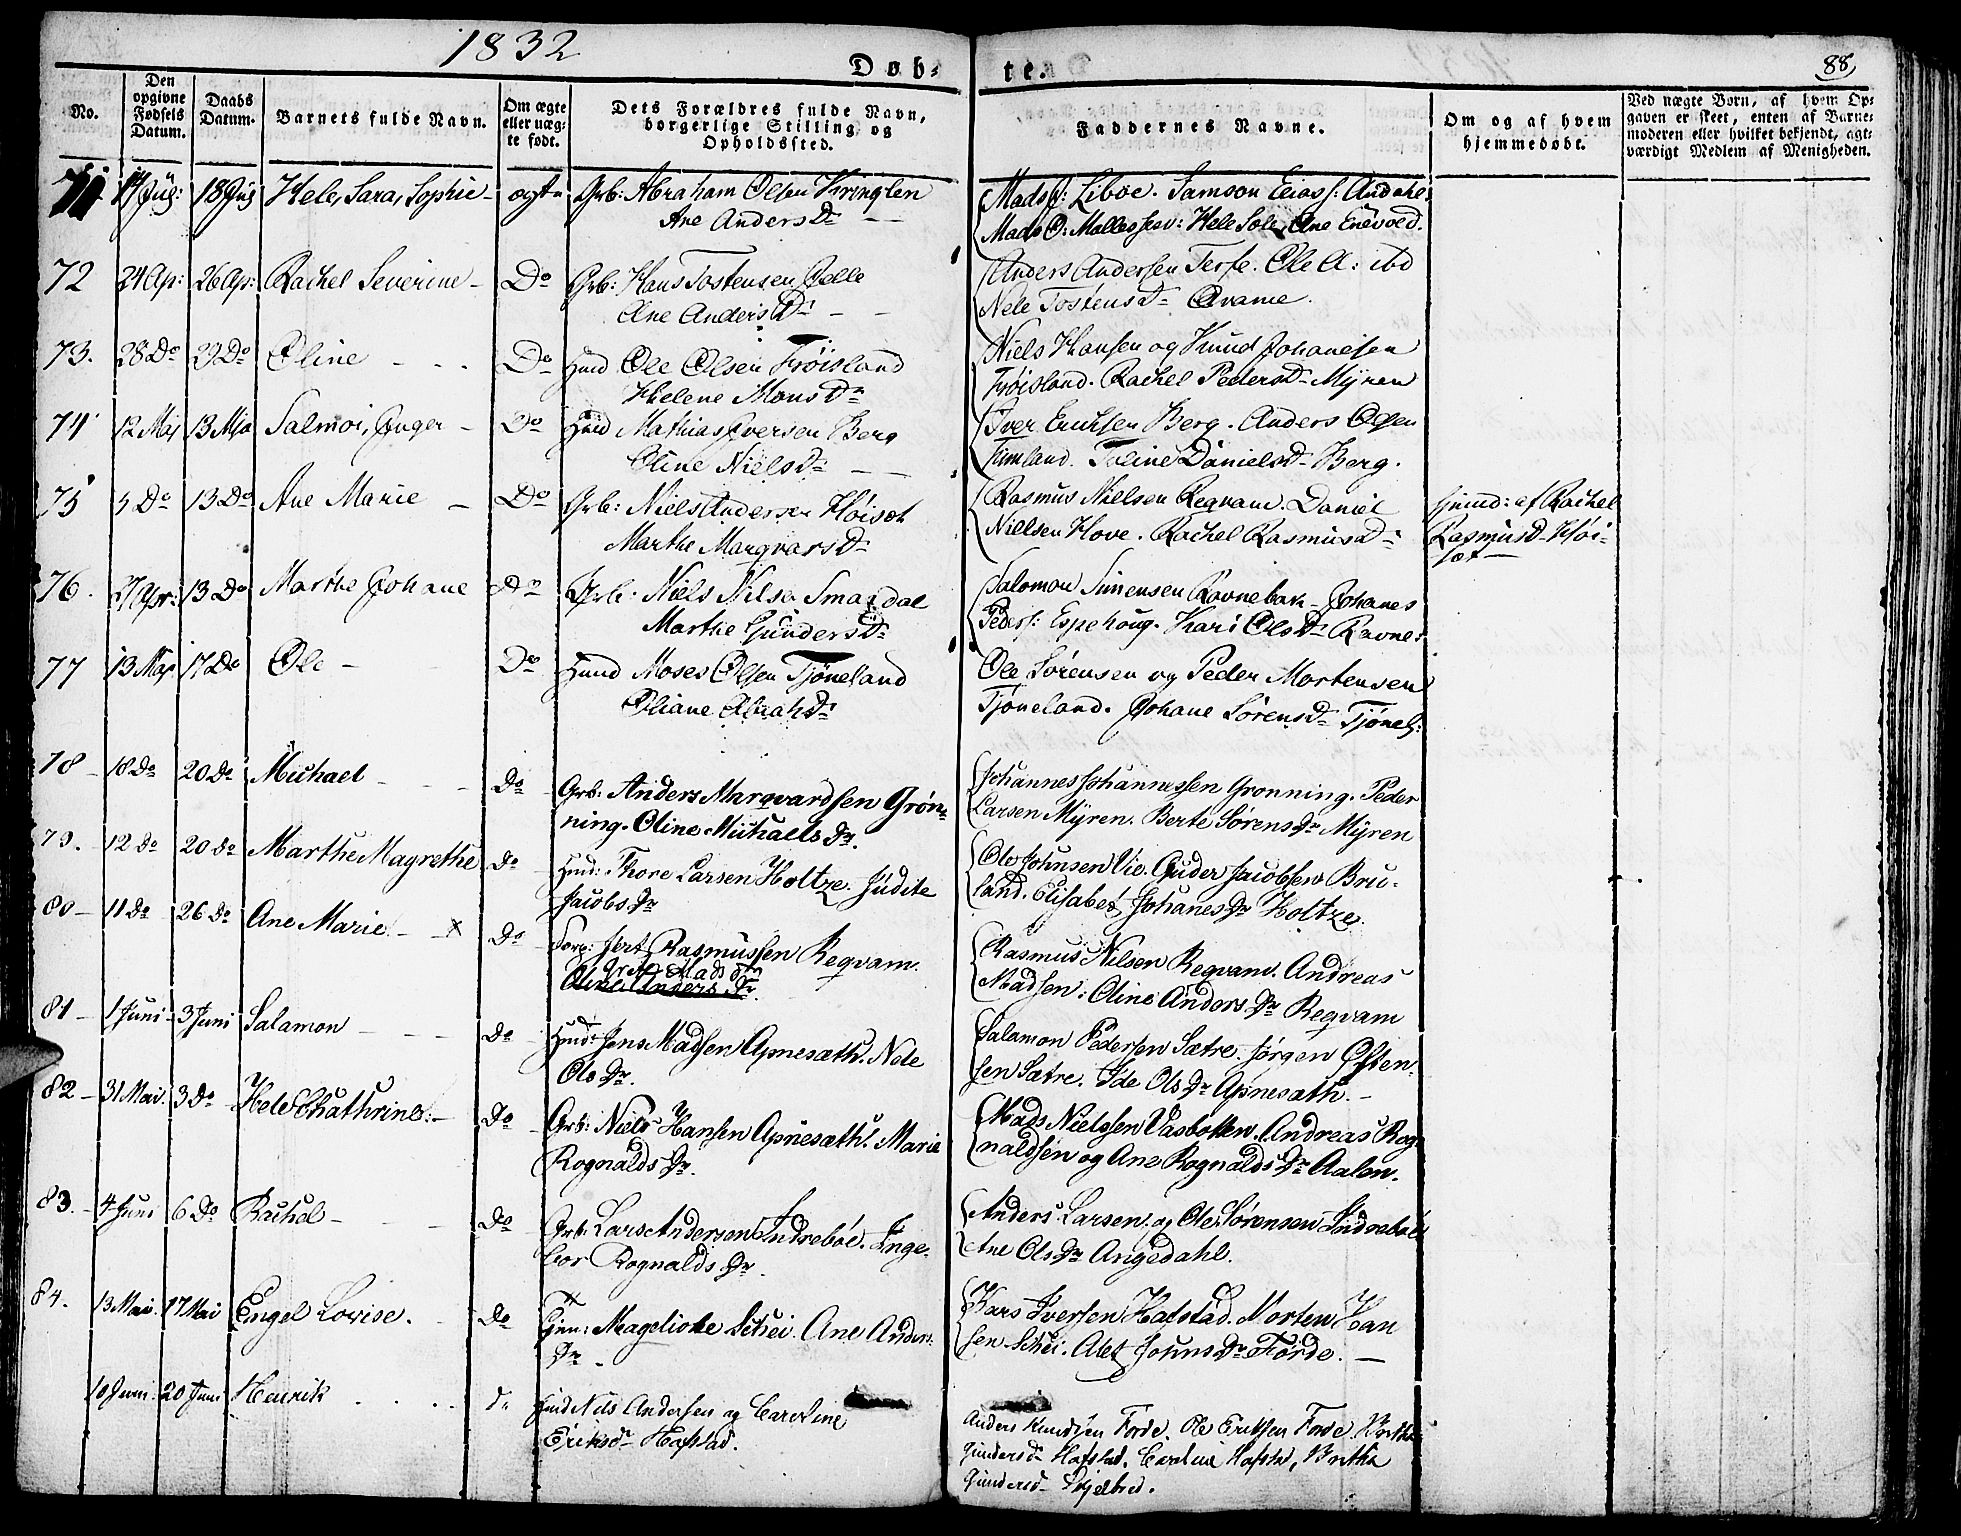 1832
Døb-
te.
88
No.
Den opgivne Fødsels Datum.
Daabs Datum.
Barnets fulde Navn.
Om ægte eller uæg- te født.
Dets Forældres fulde Navn, borgerlige Stilling og Opholdssted.
Faddernes Navne.
Om og af hvem hjemmedøbt.
Ved uægte Børn, af hvem Op- gaven er skeet, enten af Barne- moderen eller hvilket bekjendt, agt- værdigt Medlem af Menigheden.
71 18 Hele, Sara, Sophie - ægt- Grb: Abraham Olsen Kringlen
Ane Andersd
Mads Liboe. Samson
Mads O: Hele Ane
72 24 Ap: 26 Ap: Rachel Severine - Do Grb: Hans Tostensen
Ane Andersd
Anders Andersen Terfe. Ole A: ibd
Nele Tostensd
73. 28 Do 29 Do Oline - - - Do Huusd Ole Olsen Frøisland
Helene Monsd
Niels Hansen og Knud Johanesen
Frøisland. Rachel Pedersd Myren
74 12 Maj 13 Maj Salmoi, Inger - Do Huusd Mathias Iversen Berg
Oline Nielsd
Iver Erichsen Berg. Anders Olsen
Timland. Toline Danielsd Berg.
75 5 Do 13 Do Ane Marie - Do Grb: Niels Andersen Høiset
Marthe Marqvarsd
Rasmus Nielsen Reqvam. Daniel
Nielsen Hove. Rachel Rasmusd
af Rachel
Rasmusd Høi-
set
76. 27 Apr: 13 Do Marthe Johane Do Grb: Niels Nilsen Smaadal
Marthe Gundersd
Salomon Simensen Ravnebak - Johanes
Peders: Espehoug. Kari Olsd Ravne-
77 13 Maj 17 Do Ole - Do Huusd Moses Olsen Tjøneland
Oliane
Ole Sørensen og Peder Mortensen
Tjøneland. Johane Sørensd Tjønel:
78 - 18 Do 20 Do Michael - - - Do Grb: Anders Marqvardsen Grøn-
ning. Oline Michaelsdr.
Johannes Johannessen Grønning. Peder
Larsen Myren. Berte Sørensdr Myren
79. 12 Do 20 Do Marthe Magrethe Do Huusd: Thore Larsen Holtze. Judite
Jacobsdr
Ole Johnsen Vie. Guder Jacobsen Bru-
land. Elisabet Johanesdr Holtze.
80 - 11 Do 26 Do Ane Marie - x Do Rasmussen Reqvam.
Madsdtr
Oline Andersdr.
Rasmus Nilsen Reqvam. Andreas
Madsen. Oline Andersdr Reqvam
81 - 1 Juni 3 Juni Salamon - - - Do Huusd: Jens Madsen Apnesæth. Nele
Olsdr.
Salamon Pedersen Sætre. Jørgen Østen-
sen Sætre. Ide Olsdr Apnesæth. -
82 - 31 Mai. 3 Do Hele Chathrine. - Do Grb: Niels Hansen Apnesæth. Marie
Rognaldsdr.
Mads Nielsen Vasbotten. Andreas Rog-
naldsen og Ane Rognaldsdr Aalen.
83. - 4 Juni 6 Do Rachel - - - Do Grb: Lars Andersen Indrebøe. Inge-
bor Rognaldsdr.
Anders Larsen og Ole Sørensen Indrebøe
Ane Olsdr Angedahl.
84. 13 Mai. 17 Mai Engel Lovise. Do Schei. Ane Anders-
dr.
Lars Iversen Hafstad. Morten Han
sen Schei. Johnsdr Førde. -
18 Juni 20 Juni Henrik . . . . Do Huusd Nils Andersen og Caroline
Eriksd Hafstad.
Anders Knudsen Førde. Ole Eriksen Førde. Britha
Gundersd Hafstad. Caroline Hafstad, Britha
Gundersd